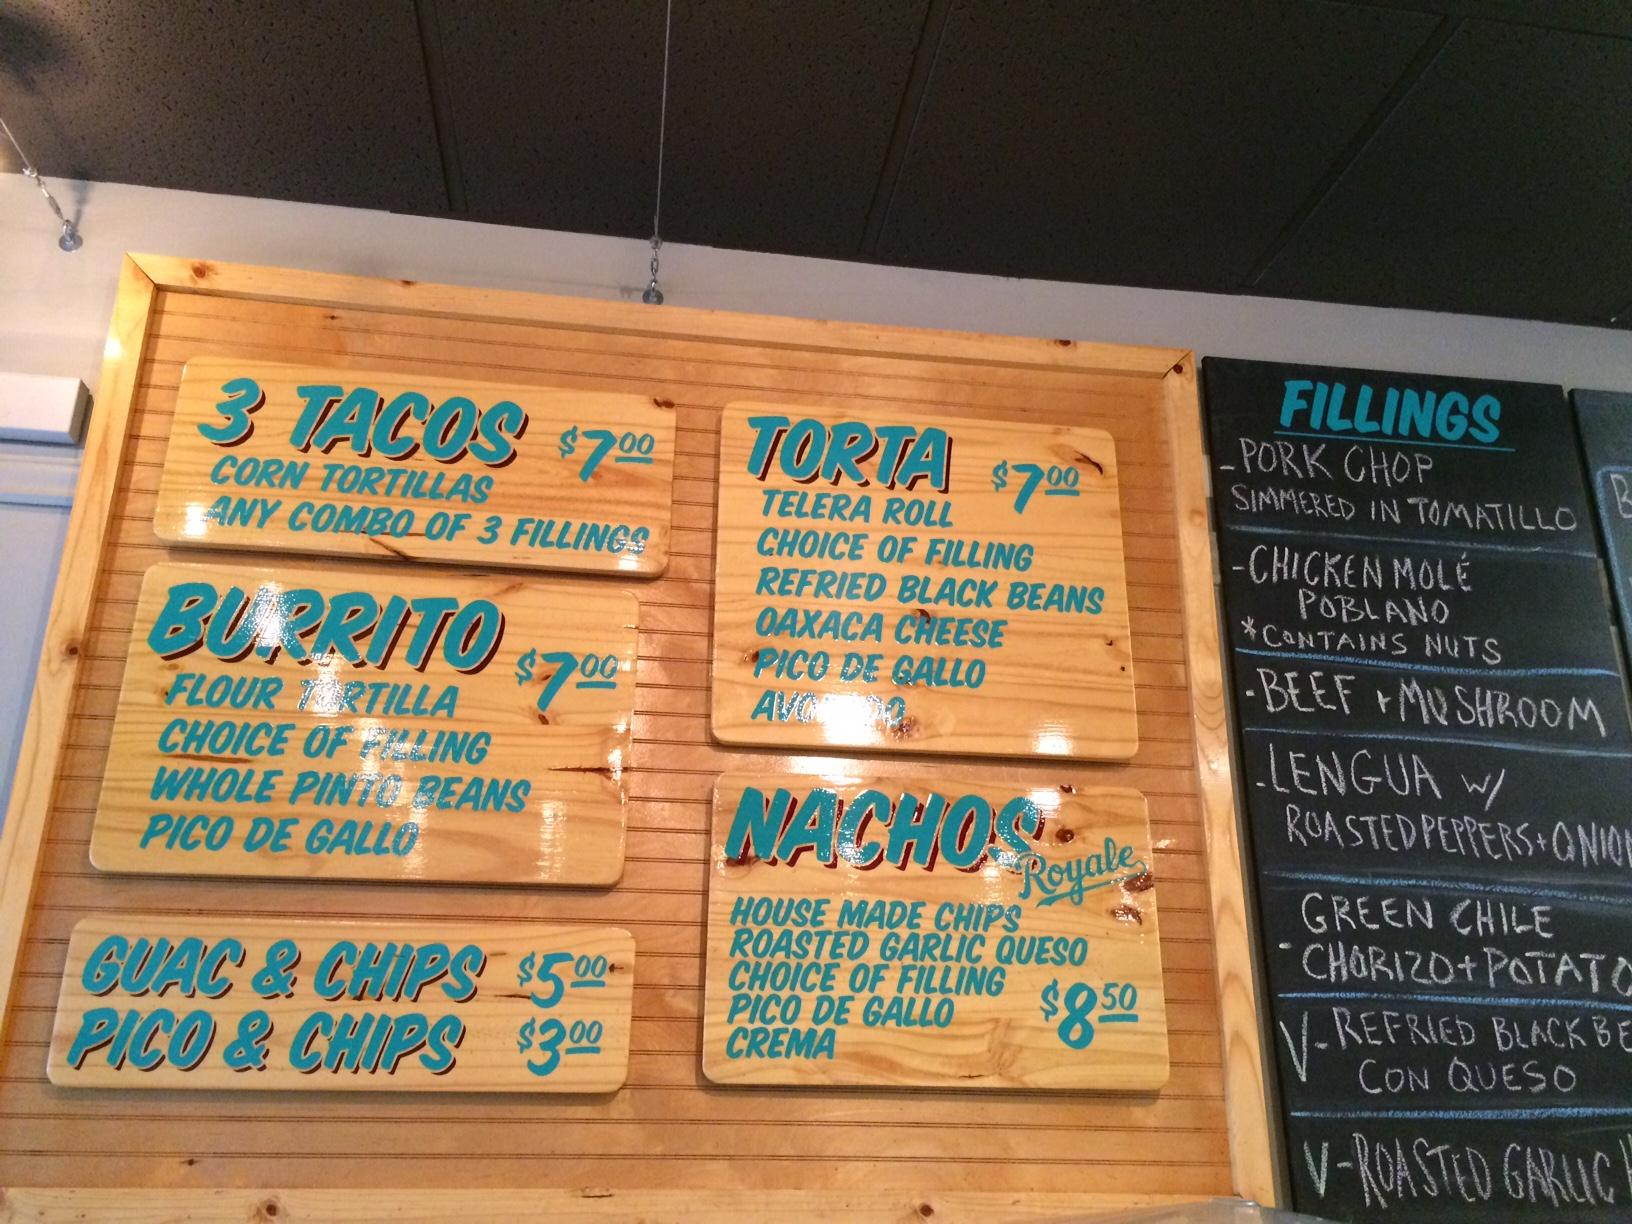 3 TACOS $7.00
CORN TORTILLAS
ANY COMBO OF 3 FILLINGS
BURRITO $7.00
FLOUR TORTILLA
CHOICE OF FILLING
WHOLE PINTO BEANS
PICO DE GALLO
GUAC & CHIPS $5.00
PICO & CHIPS $3.00
TORTA $7.00
TELERA ROLL
CHOICE OF FILLING
REFRIED BLACK BEANS
OAXACA CHEESE
PICO DE GALLO
AVOCADO
NACHOS
Royale
HOUSE MADE CHIPS
ROASTED GARLIC QUESO
CHOICE OF FILLING
PICO DE GALLO
CREMA
$8.50
FILLINGS
-PORK CHOP
SIMMERED IN TOMATILLO
-CHICKEN MOLÉ
POBLANO
*CONTAINS NUTS
-BEEF + MUSHROOM
-LENGUA W/
ROASTED PEPPERS + ONION
GREEN CHILE
- CHORIZO + POTATO
V-REFRIED BLACK BE
CON QUESO
V-ROASTED GARLIC